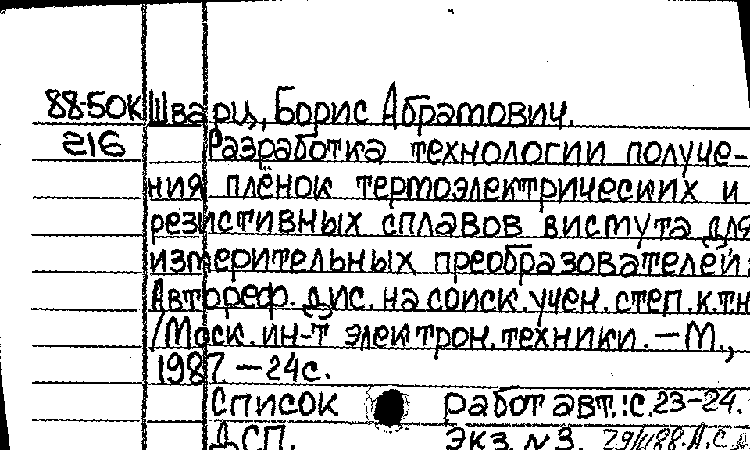 88-50К Шварц, Борис Абрамович.
216 Разработка технологии получе-
ния плёнок термоэлектрических и
резистивных сплавов висмута для
измерительных преобразователей:
Автореф. дис. на соиск. учен. степ. к.т.н
/Моск. ин-т электрон. техники. — М.,
1987. — 24с.
Список работ авт.: с. 23-24.
ДСП. Экз. №3.